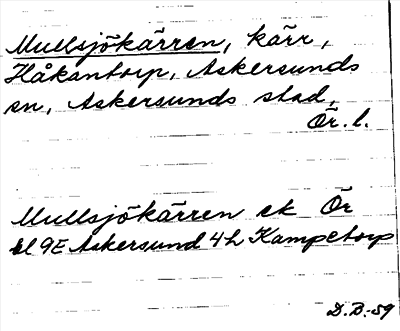 Mullsjökärren, kärr,
Håkantorp, Askersunds
sn, Askersunds stad,
Ör. l.
Mullsjökärren ek Ör
bl 9E Askersund 4h Kampetorp
D.B.-59